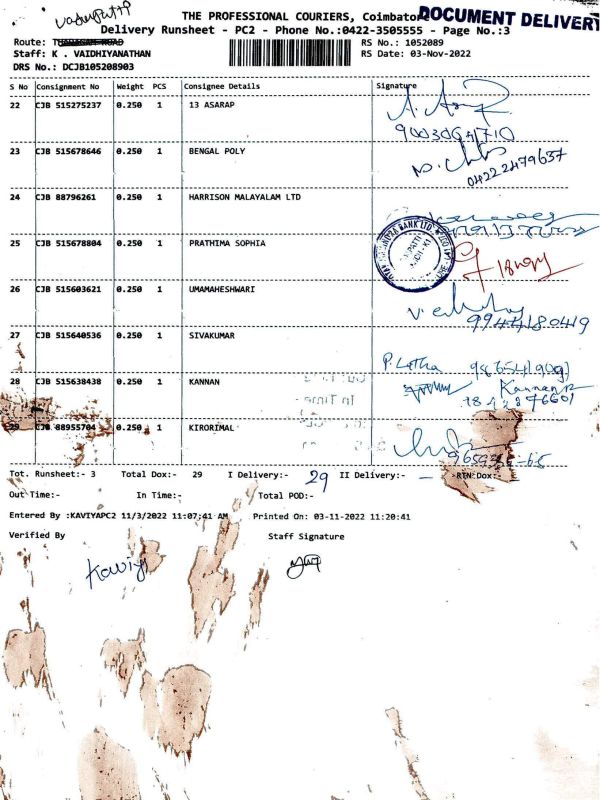 THE PROFESSIONAL COURIERS, Coimbatore
DOCUMENT DELIVERY
Delivery Runsheet - PC2 - Phone No.:0422-3505555 - Page No.:3
Route:
RS No.: 1052089
Staff: K . VAIDHIYANATHAN
RS Date: 03-Nov-2022
DRS No.: DCJB105208903
S No Consignment No Weight PCS Consignee Details Signature
22 CJB 515275237 0.250 1 13 ASARAP
23 CJB 515678646 0.250 1 BENGAL POLY
04222479637
24 CJB 88796261 0.250 1 HARRISON MALAYALAM LTD
25 CJB 515678804 0.250 1 PRATHIMA SOPHIA
26 CJB 515603621 0.250 1 UMAMAHESHWARI
9944180419
27 CJB 515640536 0.250 1 SIVAKUMAR
P. Latha
28 CJB 515638438 0.250 1 KANNAN
Kannan
29 CJB 88955704 0.250 1 KIRORIMAL
Tot. Runsheet:- 3 Total Dox:- 29 I Delivery:- 29 II Delivery:- — -RTN Dox:-
Out Time:- In Time:- Total POD:-
Entered By :KAVIYAPC2 11/3/2022 11:07:41 AM Printed On: 03-11-2022 11:20:41
Verified By Staff Signature
Kaviya